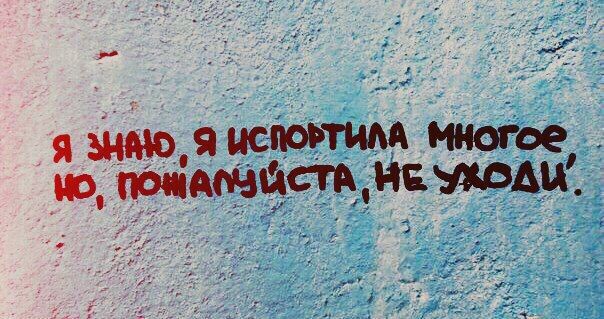 Я ЗНАЮ, Я ИСПОРТИЛА МНОГОЕ,
НО, ПОЖАЛУЙСТА, НЕ УХОДИ.